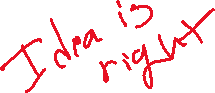 Idea is
right